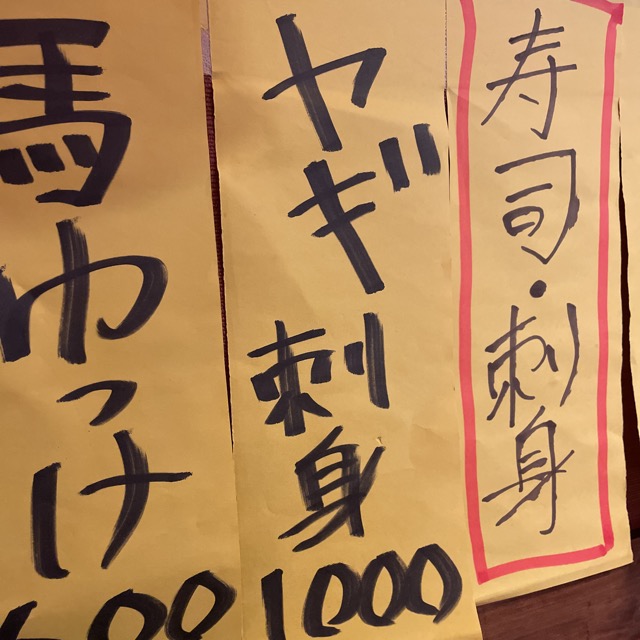 寿司・刺身
ヤギ刺身
1000
馬ゆっけ